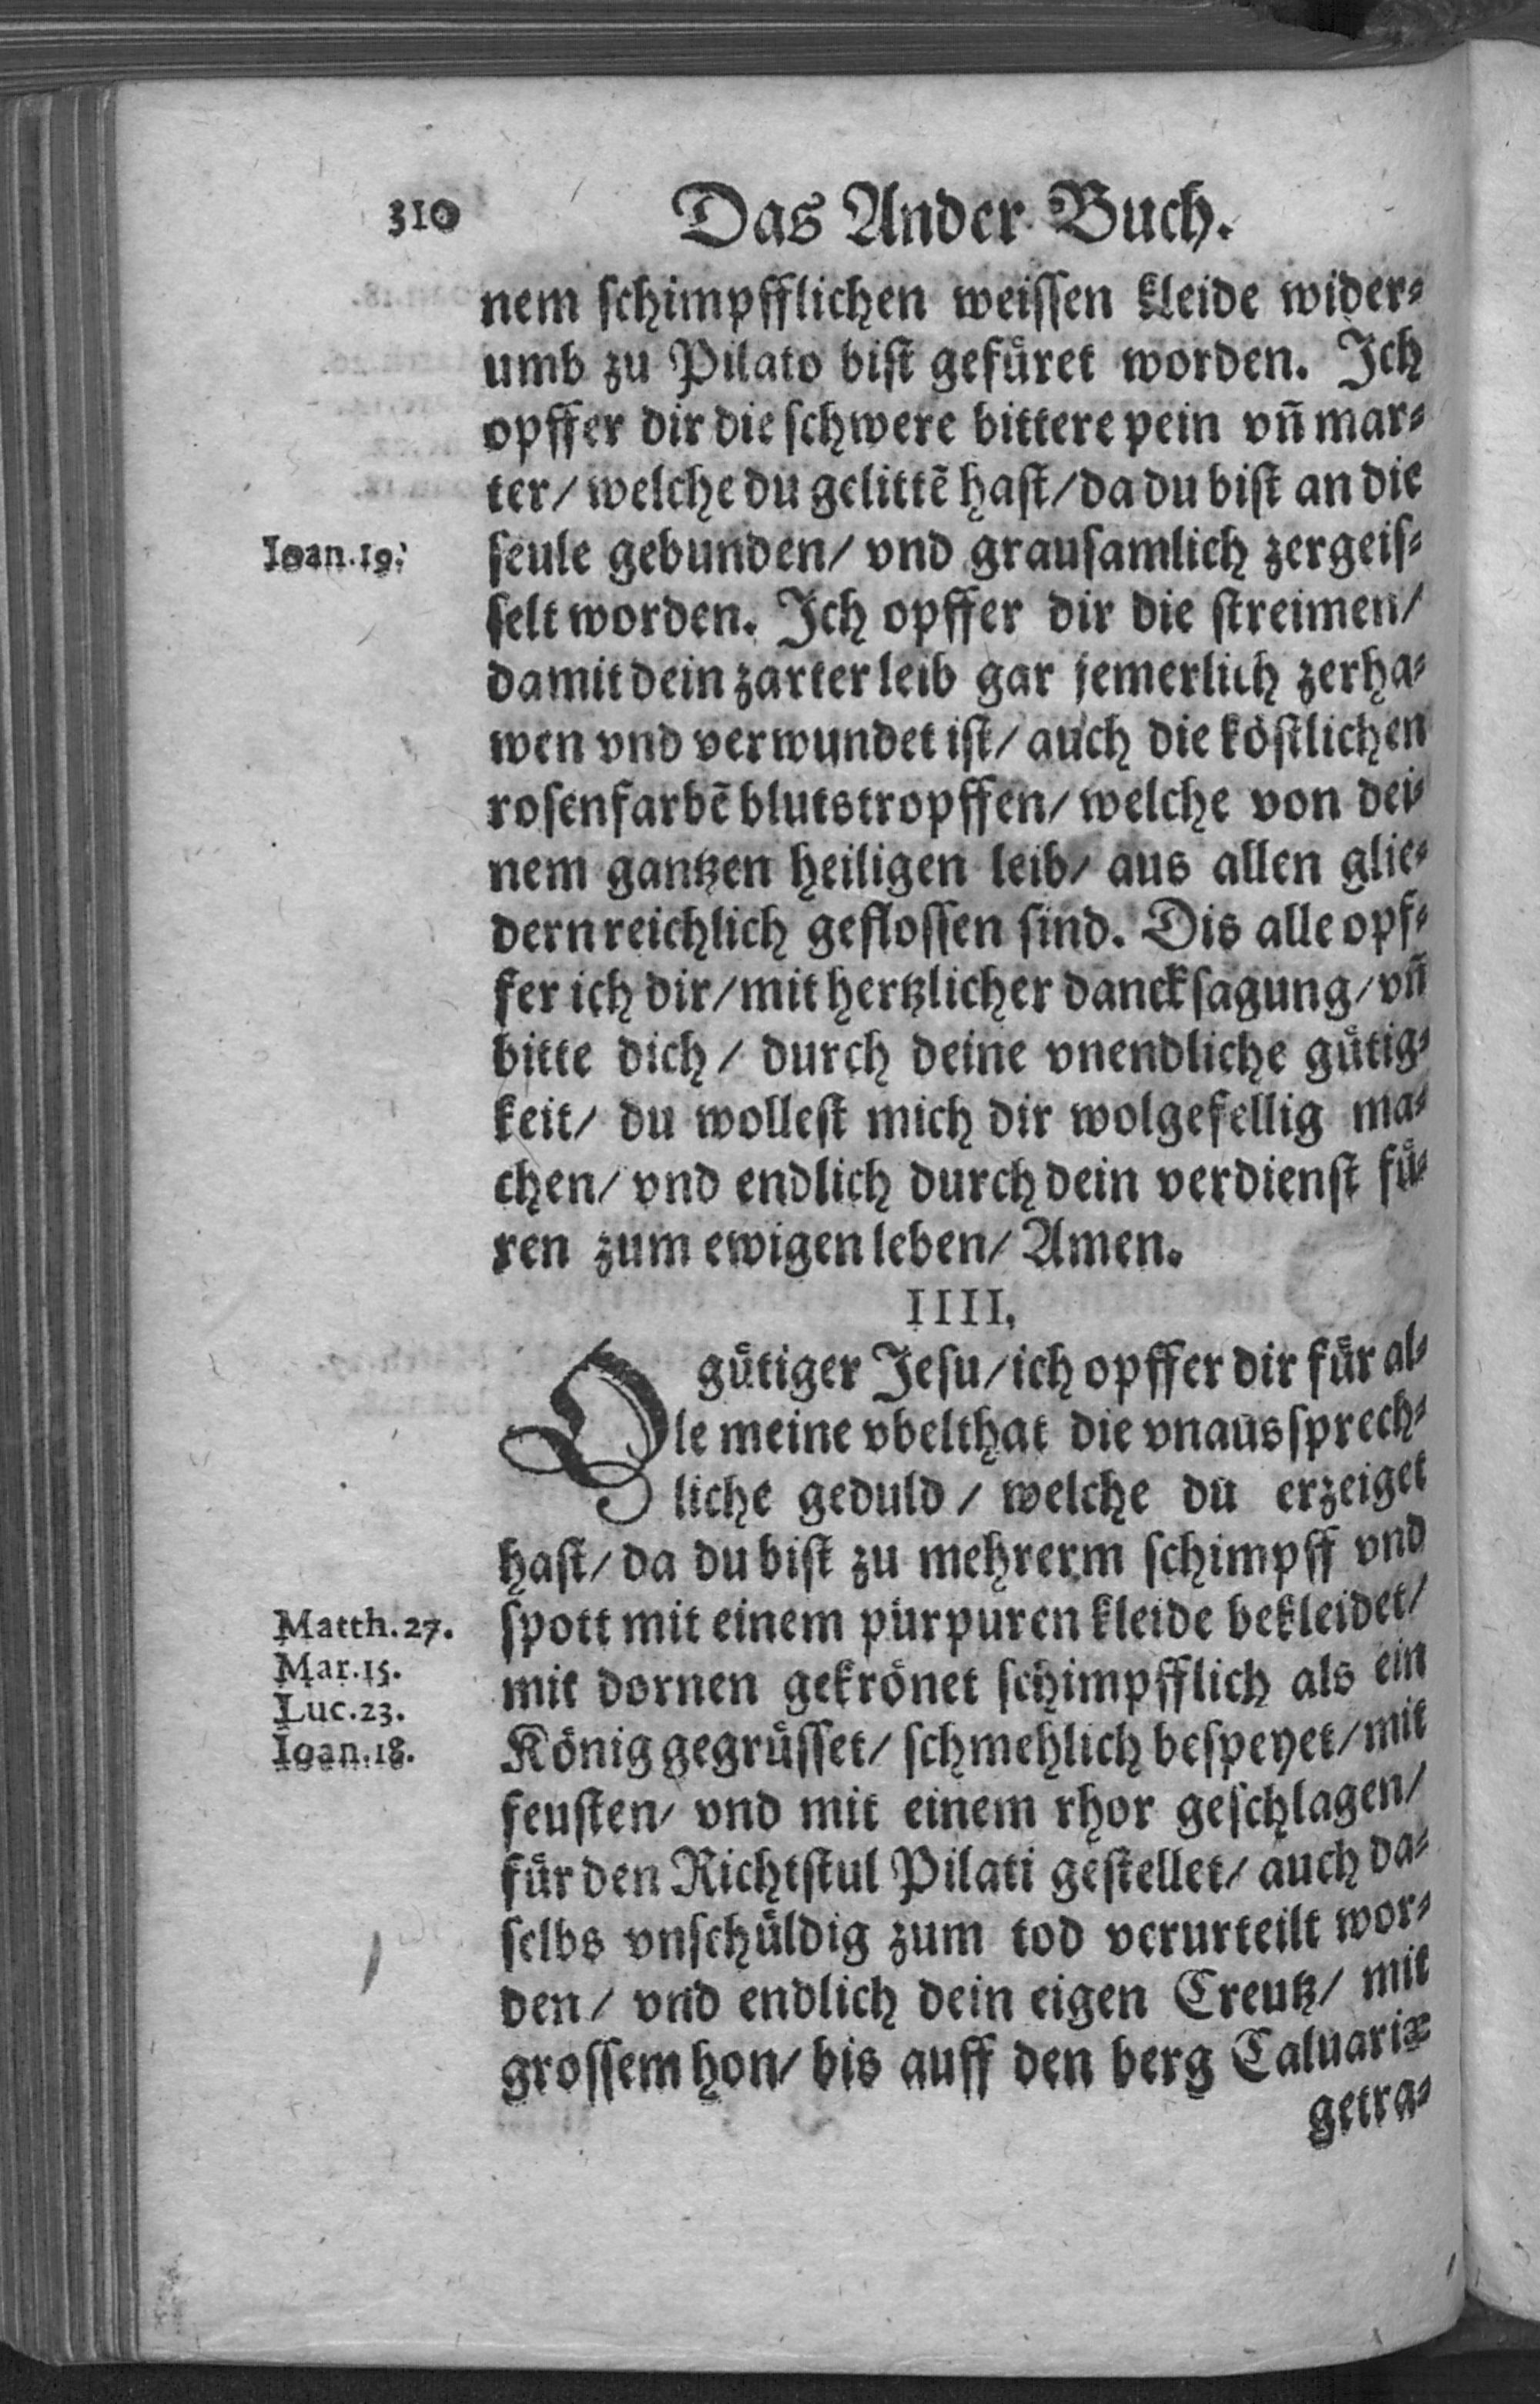 310 Das Ander Buch.
nem schimpfflichen weissen kleide wider-
umb zu Pilato bist gefüret worden. Ich
opffer dir die schwere bittere pein vñ mar-
ter/ welche du gelittẽ hast/ da du bist an die
Ioan.19. seule gebunden/ vnd grausamlich zergeis-
selt worden. Ich opffer dir die streimen/
damit dein zarter leib gar jemerlich zerha-
wen vnd verwundet ist/ auch die köstlichen
rosenfarbẽ blutstropffen/ welche von dei-
nem gantzen heiligen leib/ aus allen glie-
dern reichlich geflossen sind. Dis alle opf-
fer ich dir/ mit hertzlicher dancksagung/ vñ
bitte dich/ durch deine vnendliche gütig-
keit/ du wollest mich dir wolgefellig ma-
chen/ vnd endlich durch dein verdienst fü-
ren zum ewigen leben/ Amen.
IIII.
O gütiger Jesu/ ich opffer dir für al-
le meine vbelthat die vnaussprech-
liche geduld/ welche du erzeiget
hast/ da du bist zu mehrerm schimpff vnd
Matth.27. spott mit einem purpuren kleide bekleidet/
Mar.15. mit dornen gekrönet schimpfflich als ein
Luc.23.
Ioan.18. König gegrüsset/ schmehlich bespeyet/ mit
feusten/ vnd mit einem rhor geschlagen/
für den Richtstul Pilati gestellet/ auch da-
selbs vnschüldig zum tod verurteilt wor-
den/ vnd endlich dein eigen Creutz/ mit
grossem hon/ bis auff den berg Caluariæ
getra-